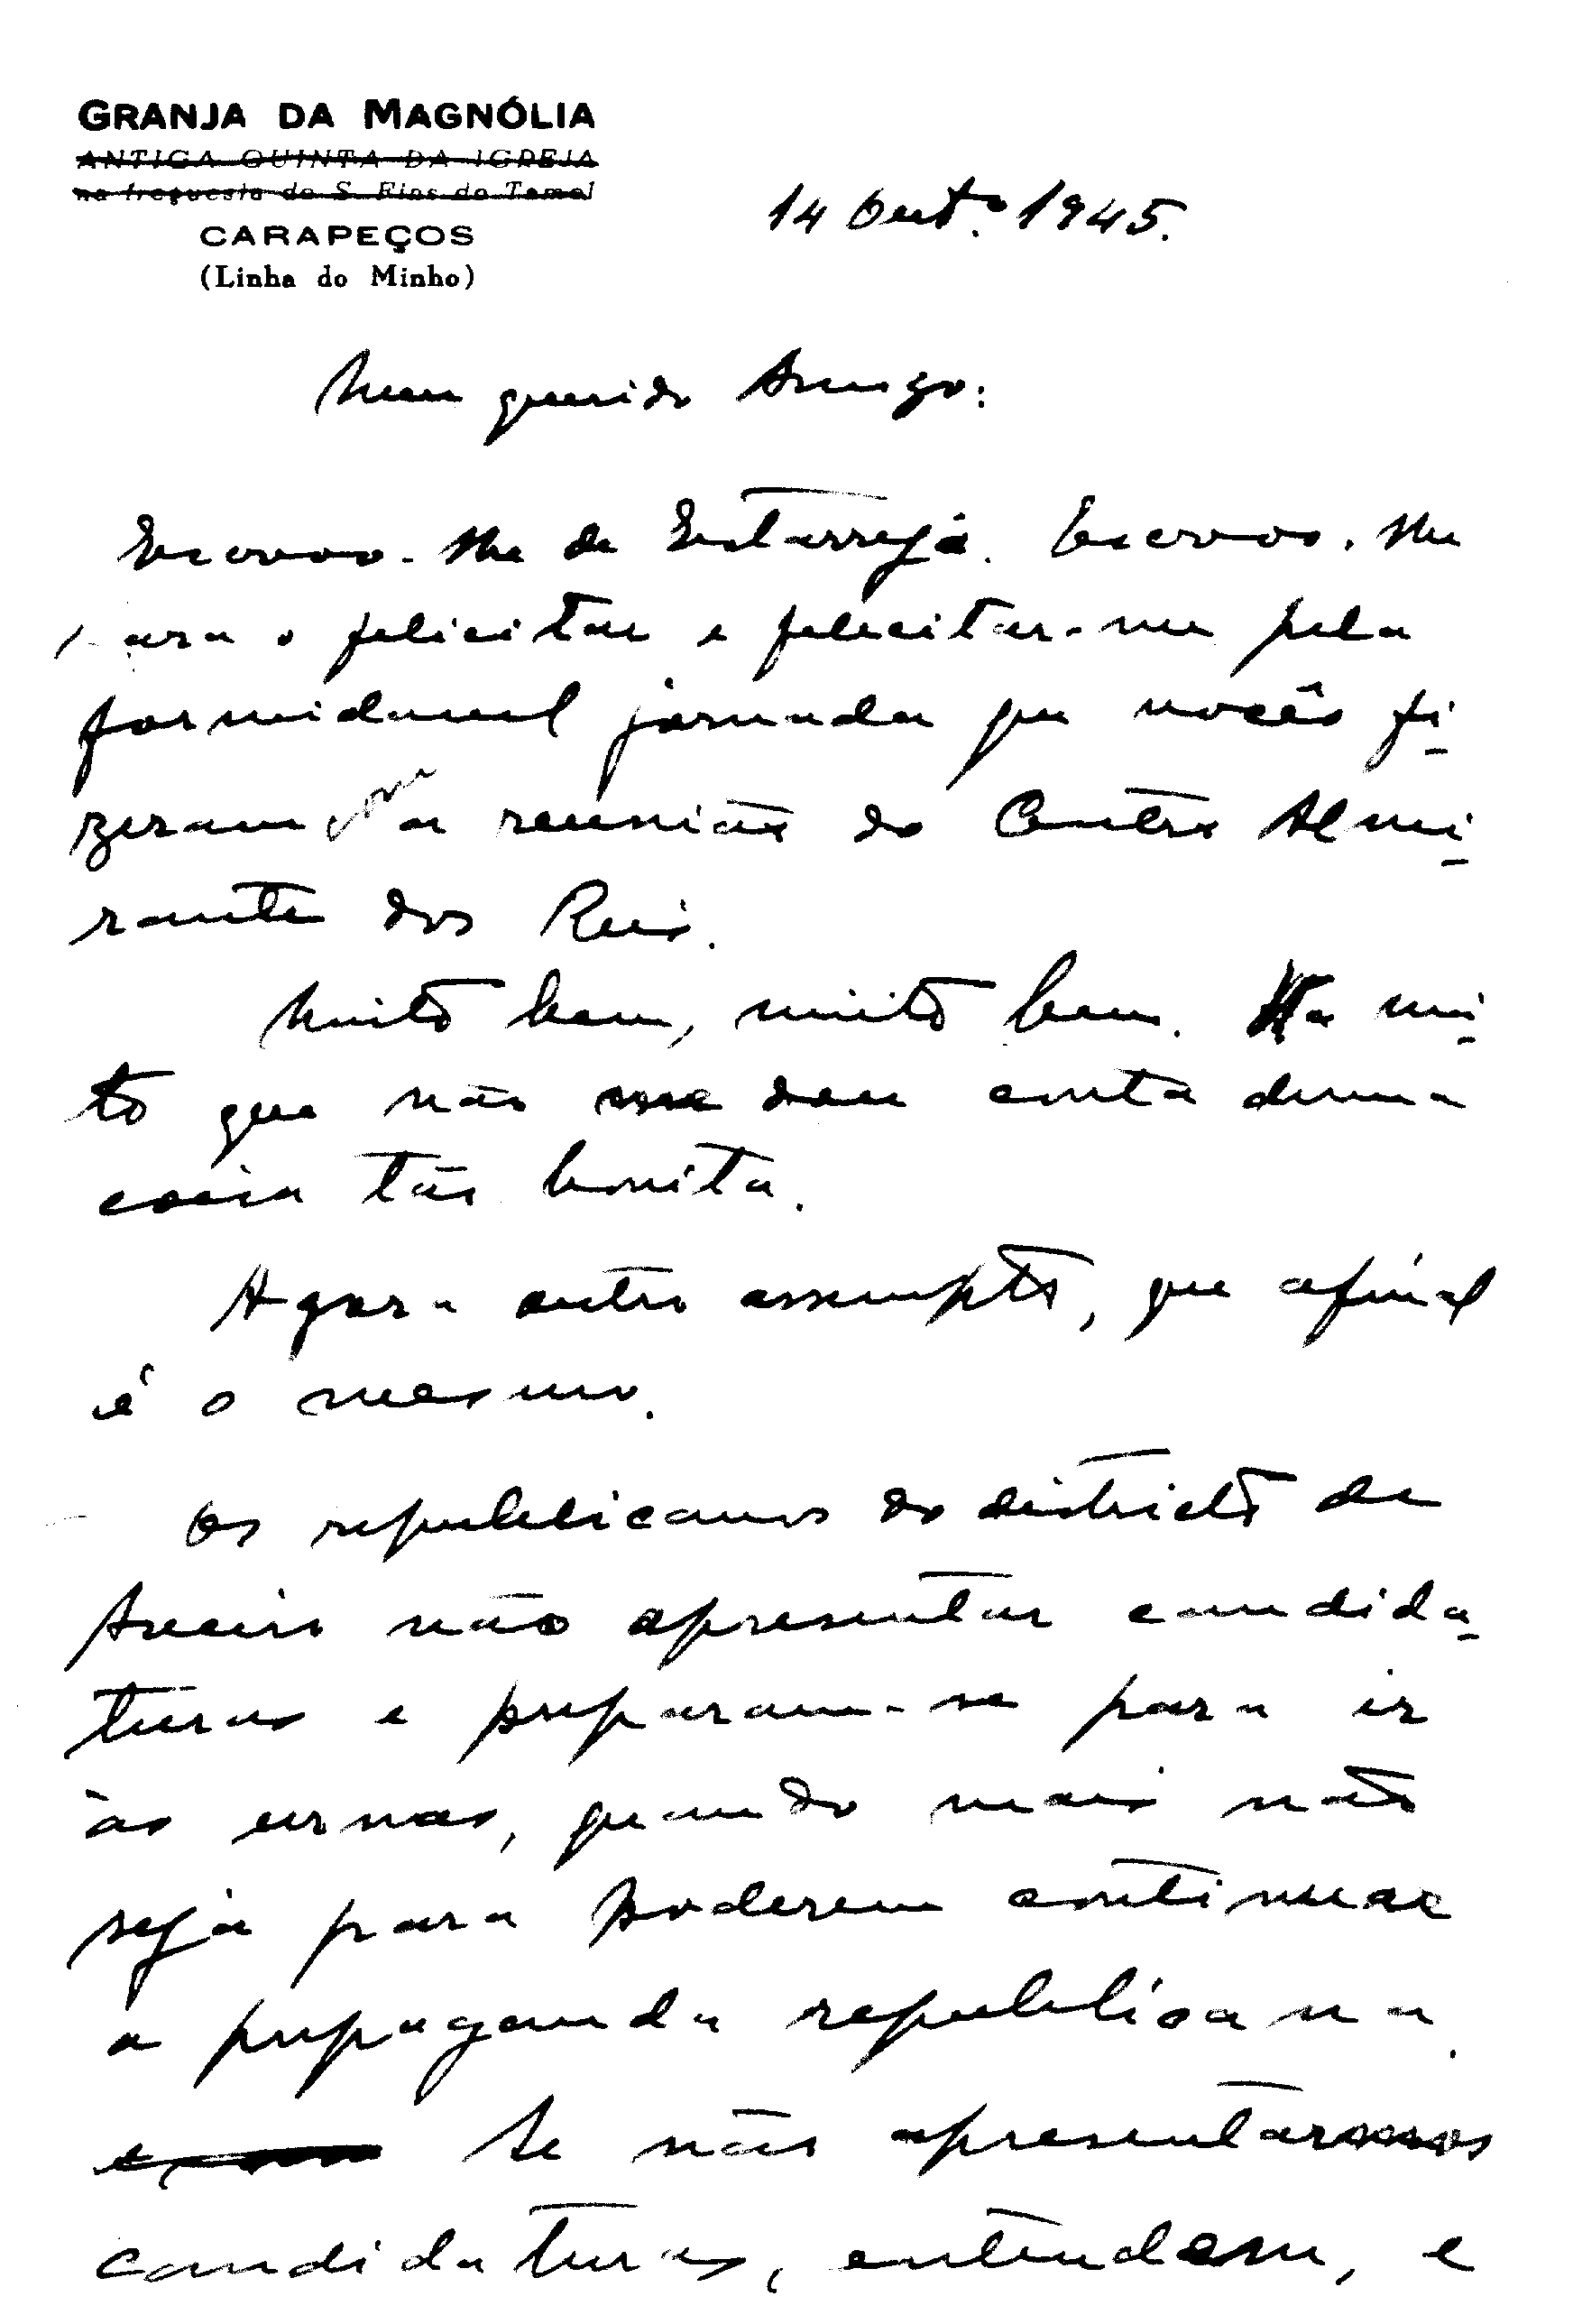 GRANJA DA MAGNÓLIA
ANTIGA QUINTA DA IGREJA
na freguesia de S. Fins do Tamel
CARAPEÇOS
(Linha do Minho)
14 Out.º 1945.
Meu querido Amigo:
Escrevo-lhe de Estarreja. Escrevo-lhe
para o felicitar e felicitar-me pela
formidavel jornada que vocês fi-
zeram com a reunião do Centro Almi-
rante dos Reis.
Muito bem, muito bem. Ha mui-
to que não me dou conta duma
coisa tão bonita.
Agora outro assumpto, que afinal
é o mesmo.
Os republicanos do districto de
Aveiro vão apresentar candida-
turas e preparam-se para ir
às urnas, quando mais não
seja para poderem continuar
a propaganda republicana.
Se não apresentarmos
candidaturas, entendem, e